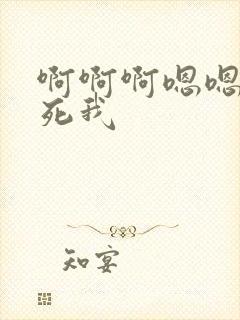 啊啊啊嗯嗯
死我
知宴